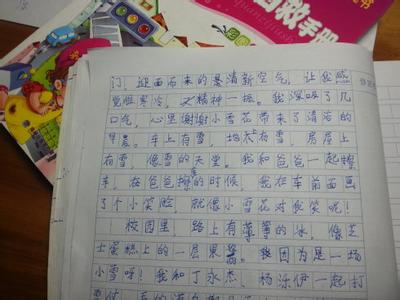 自救手册
门！迎面而来的是清新空气，让我感
觉胜寒冷，又精神一振。我深吸了几
口气，心里谢谢小雪花带来了清洁的
早晨。车上有雪，地上有雪，房屋上
有雪，像雪的天堂。我和爸爸一起擦
车，在爸爸擦的时候，我在车前面画
了个小笑脸，就像小雪花对我笑呢！
校园里，路上有薄薄的冰，像芝
士蛋糕上的一层果酱。我因为是一场
小雪呀！我和丁永杰，杨泺伊一起打